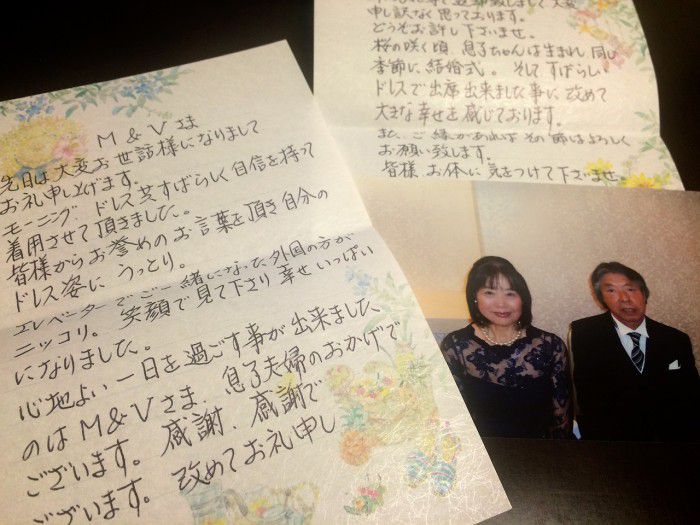 M & V さま
先日は大変お世話様になりまして
お礼申し上げます。
モーニング、ドレス共すばらしく自信を持って
着用させて頂きました。
皆様からお誉めのお言葉を頂き自分の
ドレス姿に うっとり。
エレベーターでご一緒になった外国の方が
ニッコリ。笑顔で見て下さり 幸せいっぱい
になりました。
心地よい一日を過ごす事が出来ました
のは M & V さま、息子夫婦のおかげで
ございます。感謝、感謝で
ございます。改めてお礼申し
致しまして大変
申し訳なく思っております。
どうぞお許し下さいませ。
桜の咲く頃、息子ちゃんは生まれ同じ
季節に結婚式。そしてすばらしい
ドレスで出席出来ました事に改めて
大きな幸せを感じております。
また、ご縁があれば その節はよろしく
お願い致します。
皆様 お体に気をつけて下さいませ。